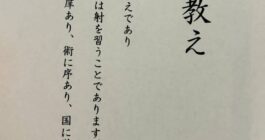 教え
えであり
は射を習うことであります
庠あり、術に序あり、国に